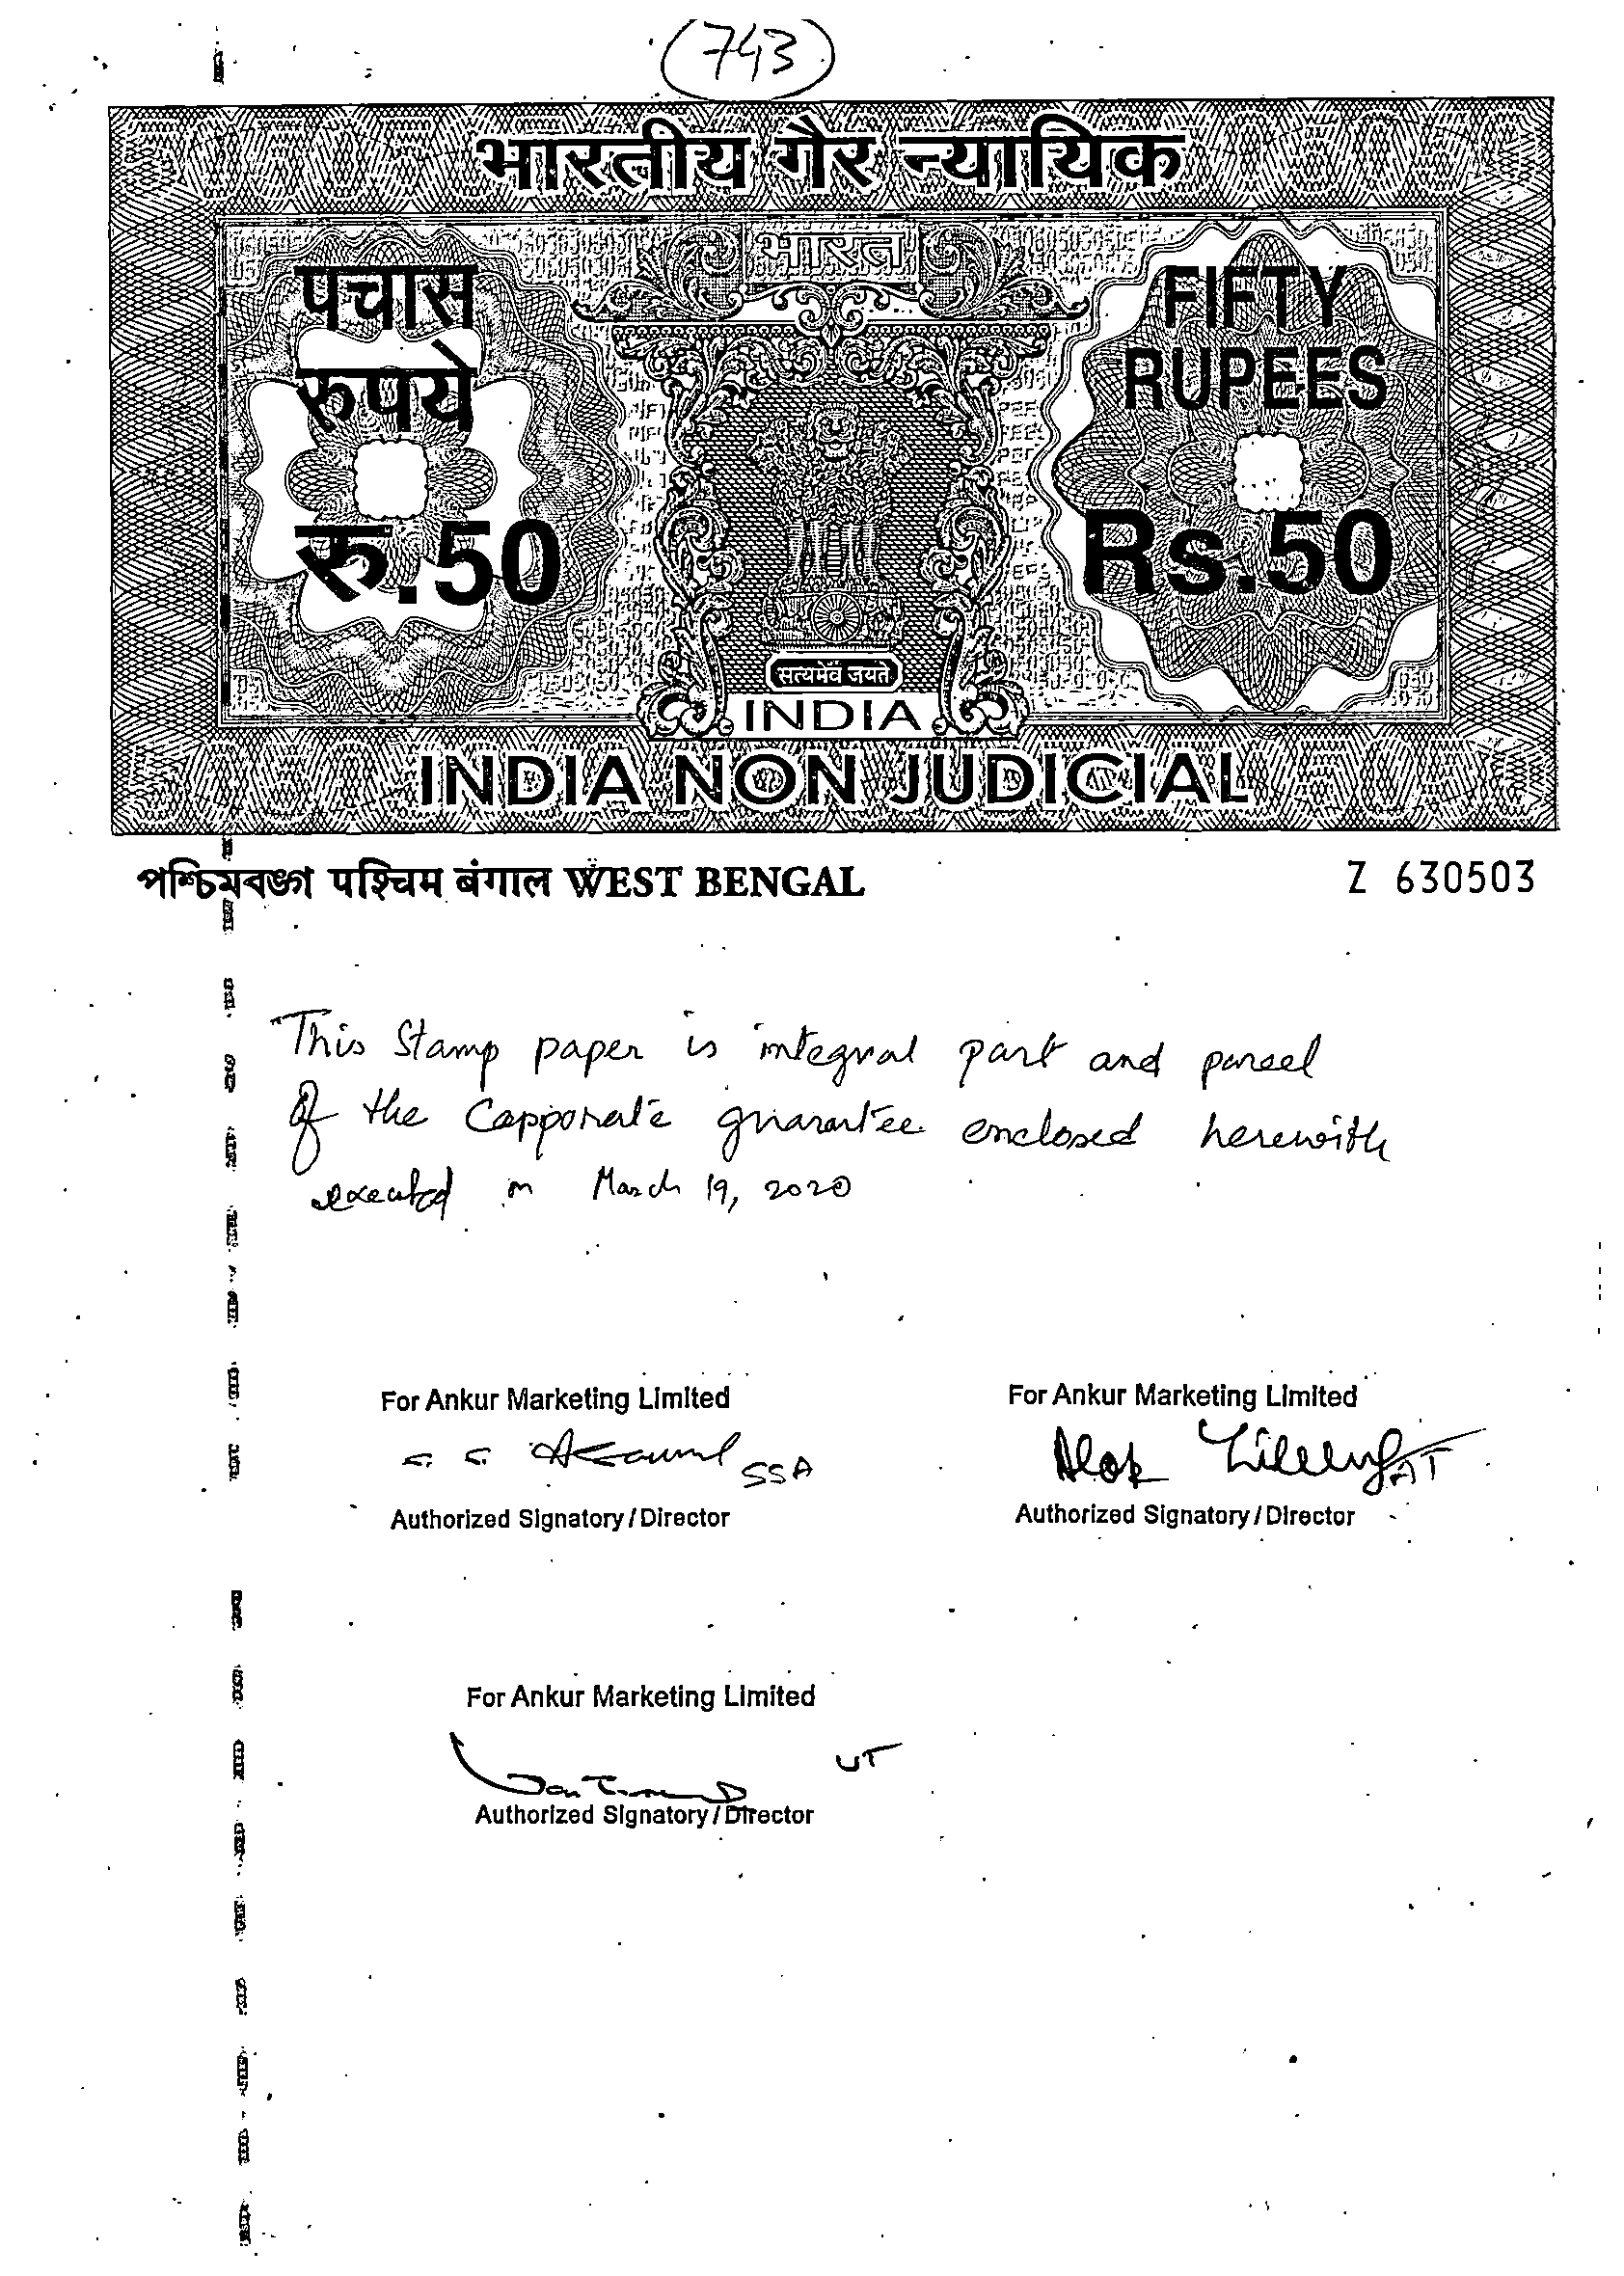 (743)
भारतीय गैर न्यायिक
भारत
पचास
रुपये
रु.50
FIFTY
RUPEES
Rs.50
सत्यमेव जयते
INDIA
INDIA NON JUDICIAL
পশ্চিমবঙ্গ पश्चिम बंगाल WEST BENGAL
Z 630503
This Stamp paper is integral part and parcel
of the Capporate guarantee enclosed herewith
executed on March 19, 2020
For Ankur Marketing Limited
For Ankur Marketing Limited
SSA
Alok AT
Authorized Signatory / Director
Authorized Signatory / Director
For Ankur Marketing Limited
UT
Authorized Signatory / Director